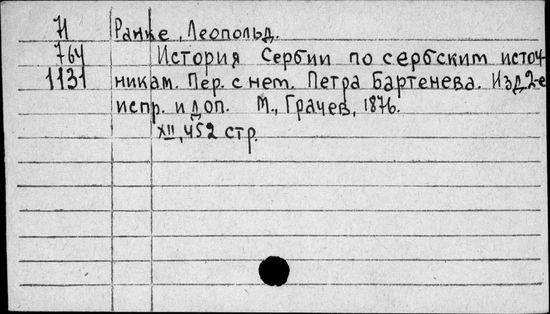 И Ранке, Леопольд.
764 История Сербии по сербским источ-
1131 никам. Пер. с нем. Петра Бартенева. Изд 2-е
испр. и доп. М., Грачев, 1876.
XII, 452 стр.